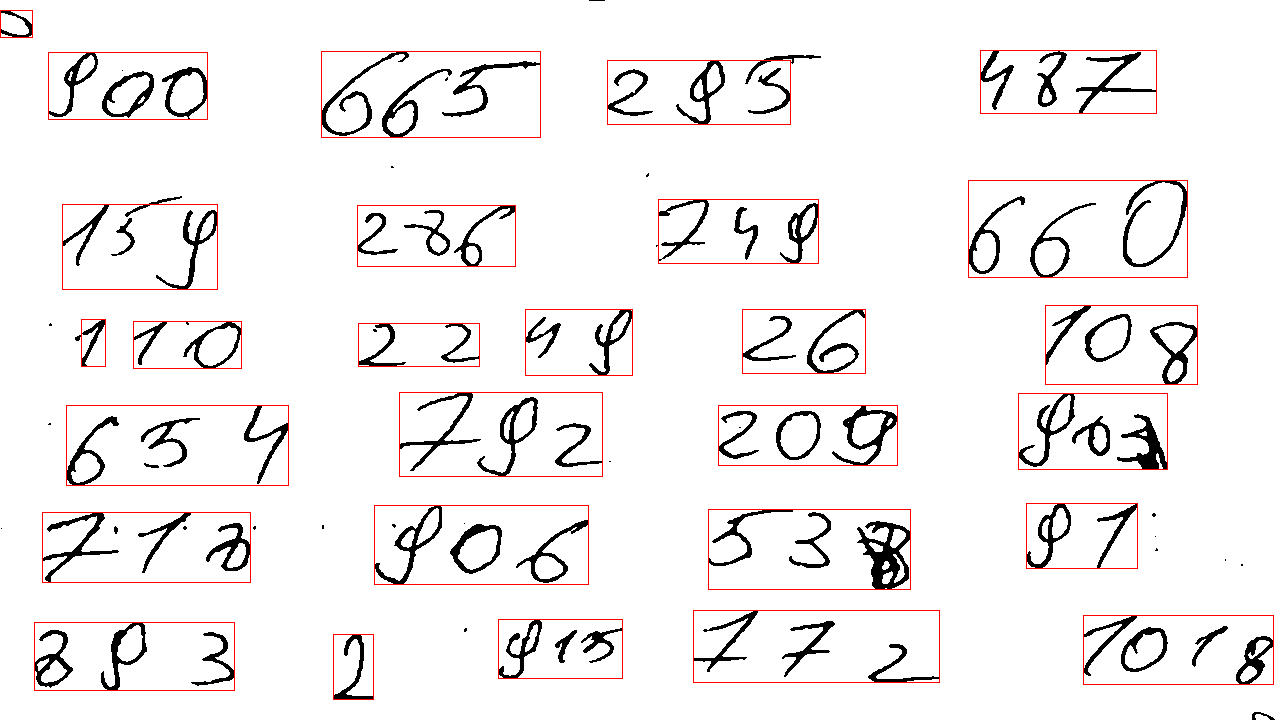 900 665 295 487
159 286 749 660
1 10 22 49 26 108
654 792 209 903
718 906 538 91
893 2 915 772 1018